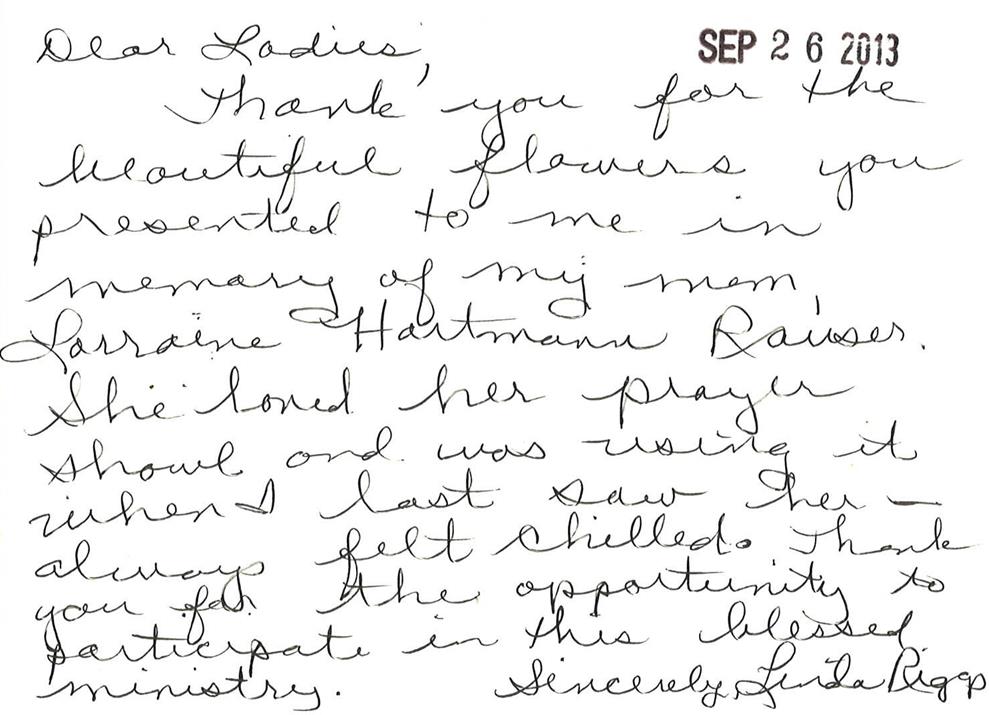 Dear Ladies,
SEP 26 2013
Thank you for the
beautiful flowers you
presented to me in
memory of my mom,
Lorraine Hartmann Rauser.
She loved her prayer
shawl and was using it
when I last saw her –
always felt chilled. Thank
you for the opportunity to
participate in this blessed
ministry. Sincerely, Linda Riggs